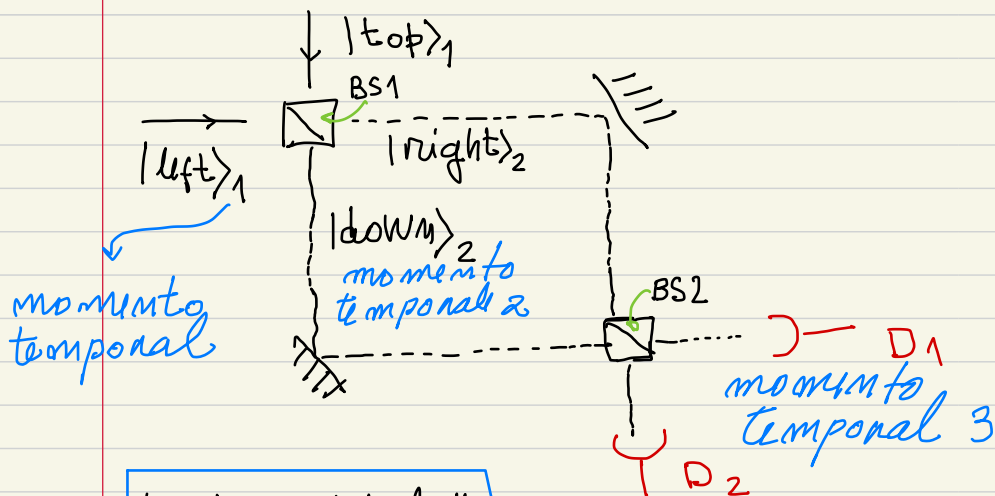 |top⟩₁
BS1
|left⟩₁
|right⟩₂
|down⟩₂
momento
temporal
momento
temporal 2
BS2
D₁
momento
temporal 3
D₂